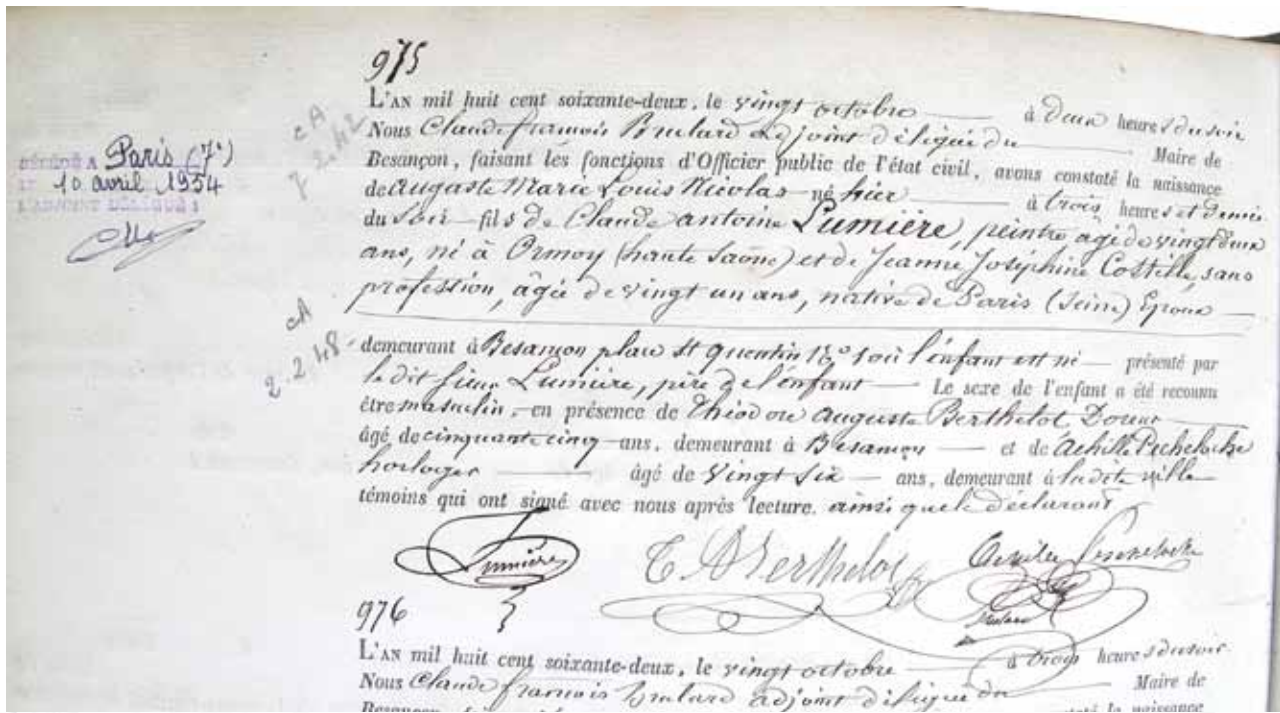 975
L'AN mil huit cent soixante-deux, le vingt octobre à deux heures du soir
Nous Claude françois Brulard adjoint délégué du Maire de
Besançon, faisant les fonctions d'Officier public de l'état civil, avons constaté la naissance
de Auguste Marie Louis Nicolas né hier à trois heures et demie
du Soir fils de Claude antoine Lumière, peintre agé de vingt deux
ans, né à Ormoy (haute Saône) et de Jeanne Joséphine Costille, sans
profession, âgée de vingt un ans, native de Paris (Seine) Epoux
demeurant à Besançon place St Quentin où l'enfant est né présenté par
le dit Sieur Lumière, père de l'enfant Le sexe de l'enfant a été reconnu
être masculin, en présence de Théodore Auguste Berthelot, Doreur
âgé de cinquante cinq ans, demeurant à Besançon et de Achille
horloger âgé de Vingt Six ans, demeurant à la dite ville
témoins qui ont signé avec nous après lecture, ainsi que le déclarant
DÉCÉDÉ A Paris (7e)
LE 10 avril 1954
L'AGENT DÉLÉGUÉ :
Lumière
T. A Berthelot
Brulard
976
L'AN mil huit cent soixante-deux, le vingt octobre à trois heures du soir
Nous Claude françois Brulard adjoint délégué du Maire de
Besançon, constaté la naissance